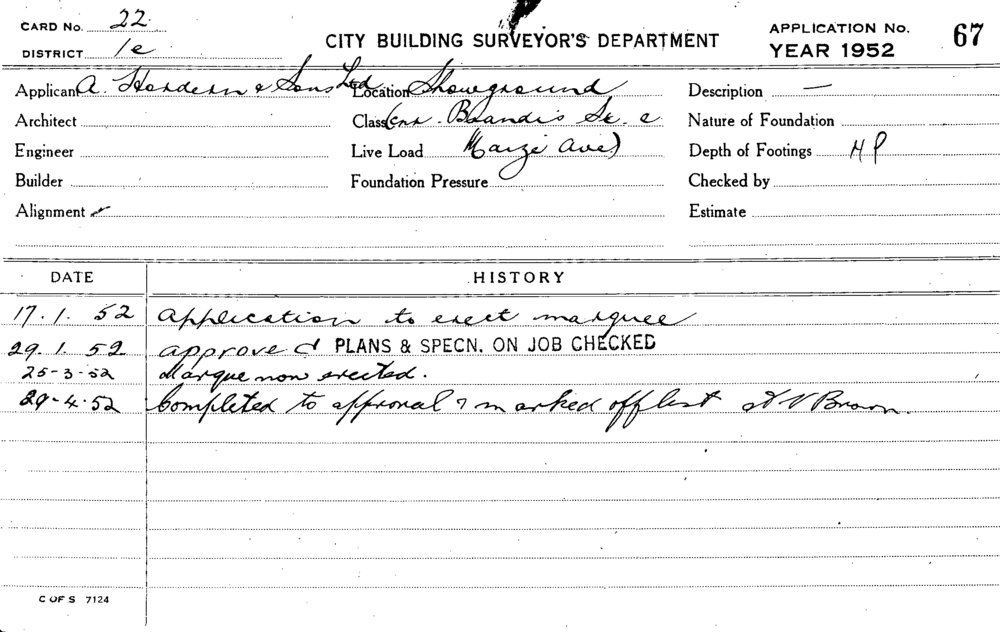 CARD No. 22
DISTRICT 1e
CITY BUILDING SURVEYOR'S DEPARTMENT
APPLICATION No. 67
YEAR 1952
Applicant A. Hordern & Sons Ltd
Location Showground
Description —
Architect
Class (cnr. Brandis St. &
Nature of Foundation
Engineer
Live Load Ave)
Depth of Footings HP
Builder
Foundation Pressure
Checked by
Alignment
Estimate
DATE HISTORY
17. 1. 52 Application to erect marquee
29. 1. 52 approved PLANS & SPECN. ON JOB CHECKED
25-3-52 Marque now erected.
29-4-52 Completed to approval & marked off list Brown.
C OF S 7124